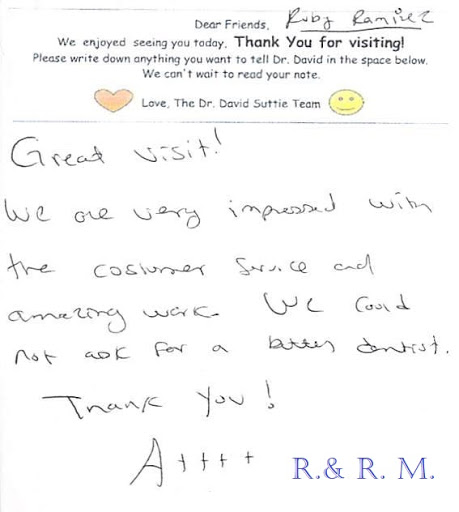 Dear Friends, Ruby Ramirez
We enjoyed seeing you today, Thank You for visiting!
Please write down anything you want to tell Dr. David in the space below.
We can't wait to read your note.
Love, The Dr. David Suttie Team
Great visit!
We are very impressed with
the costumer service and
amazing work. We could
not ask for a better dentist.
Thank you!
A++++
R.& R. M.